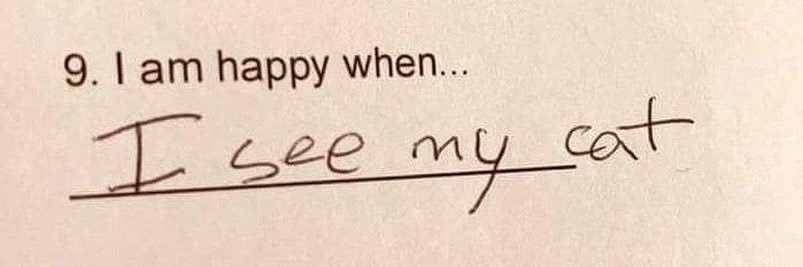 9. I am happy when...
I see my cat